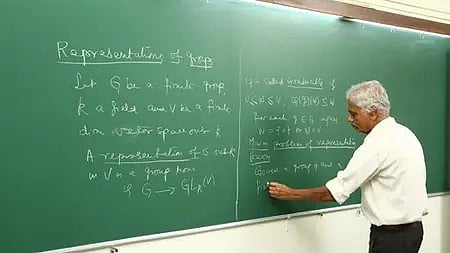 Representations of groups
Let G be a finite group,
k a field and V be a finite
dim vector space over k
A representation of G over k
in V is a group hom
ϱ G → GL_k(V)
called irreducible if
W ⊆ V, ϱ(g)(W) ⊆ W
for each g ∈ G
W = {0} or W = V
Main problem of representation
Given a group G and a